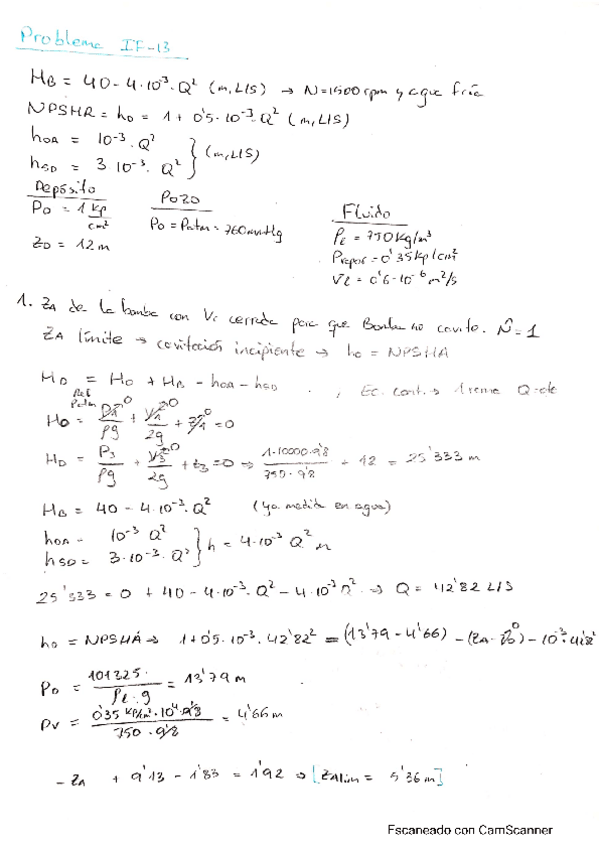 Problema IF-13
HB = 40 - 4·10⁻³·Q² (m, L/S) → N=1500rpm y agua fría
NPSHR = h0 = 1 + 0'5·10⁻³·Q² (m, L/S)
hOA = 10⁻³·Q²
hSD = 3 10⁻³·Q² } (m, L/S)
Depósito Pozo Fluido
PD = 1 kp/cm² P0 = Patm = 760mmHg ρL = 750kg/m³
ZD = 12m Pvapor = 0'35kp/cm²
νL = 0'6·10⁻⁶ m²/s
1. ZA de la bomba con Vr cerrada para que Bomba no cavite. N̂=1
ZA límite → cavitación incipiente → h0 = NPSHA
HD = HO + HB - hOA - hSD , Ec. cont. → 1 rama Q=cte
Ref Patm
HO = P1/ρg + V1²/2g + Z1 = 0
HD = P3/ρg + V3²/2g + Z3 = 0 ⇒ 1·10000·9'8/750·9'8 + 12 = 25'333 m
HB = 40 - 4·10⁻³·Q² (ya medida en agua)
hOA = 10⁻³ Q²
hSD = 3·10⁻³·Q² } h = 4·10⁻³ Q² m
25'333 = 0 + 40 - 4·10⁻³·Q² - 4·10⁻³ Q² ⇒ Q = 42'82 L/S
h0 = NPSHA ⇒ 1+0'5·10⁻³·42'82² = (13'79 - 4'66) - (ZA - Z0) - 10⁻³·42'8²
P0 = 101325/ρL·g = 13'79 m
Pv = 0'35 kp/cm²·10⁴·9'8/750·9'8 = 4'66 m
- ZA + 9'13 - 1'83 = 1'92 ⇒ [ZAlim = 5'36 m]
Escaneado con CamScanner